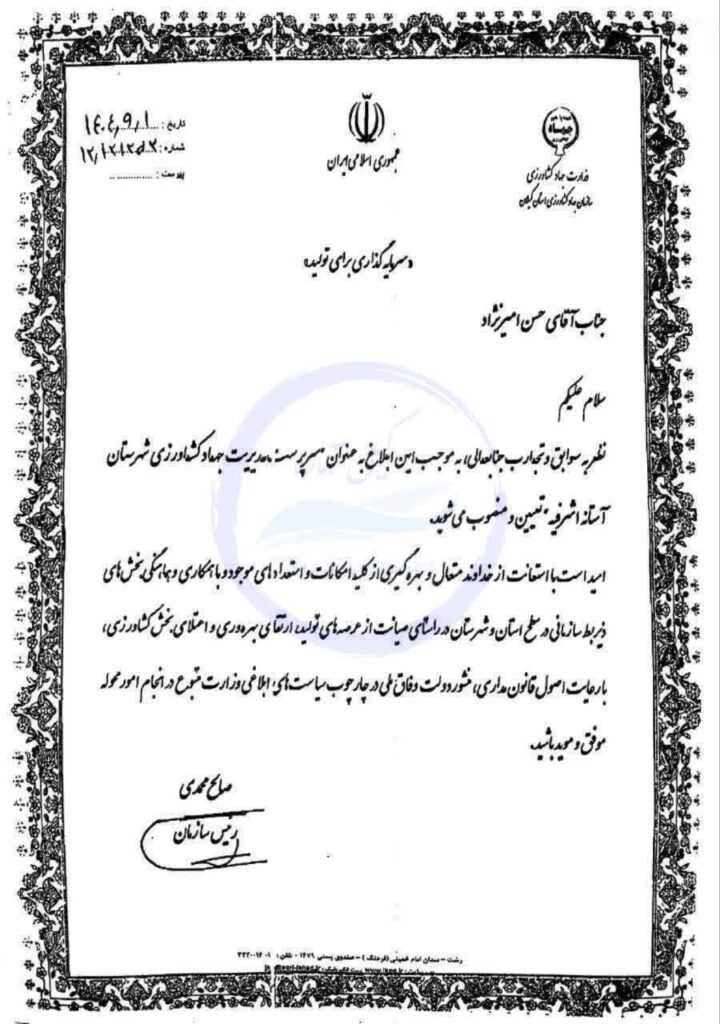 جمهوری اسلامی ایران
وزارت جهاد کشاورزی
سازمان جهاد کشاورزی استان گیلان
تاریخ : ۱۴۰۴٫۹٫۱
شماره :
پیوست :
«سرمایه گذاری برای تولید»
جناب آقای حسن امیرنژاد
سلام علیکم
نظر به سوابق و تجارب جنابعالی، به موجب این ابلاغ به عنوان سرپرست مدیریت جهاد کشاورزی شهرستان
آستانه اشرفیه تعیین و منصوب می شوید.
امید است با استعانت از خداوند متعال و بهره گیری از کلیه امکانات و استعدادهای موجود و با همکاری و هماهنگی بخش های
ذیربط سازمانی در سطح استان و شهرستان در راستای صیانت از عرصه های تولید، ارتقای بهره وری و اعتلای بخش کشاورزی،
با رعایت اصول قانون مداری، منشور دولت وفاق ملی در چارچوب سیاست های ابلاغی وزارت متبوع در انجام امور محوله
موفق و موید باشید.
صالح محمدی
رئیس سازمان
رشت – میدان امام خمینی (فرهنگ) – صندوق پستی ۱۴۷۹ - تلفن :